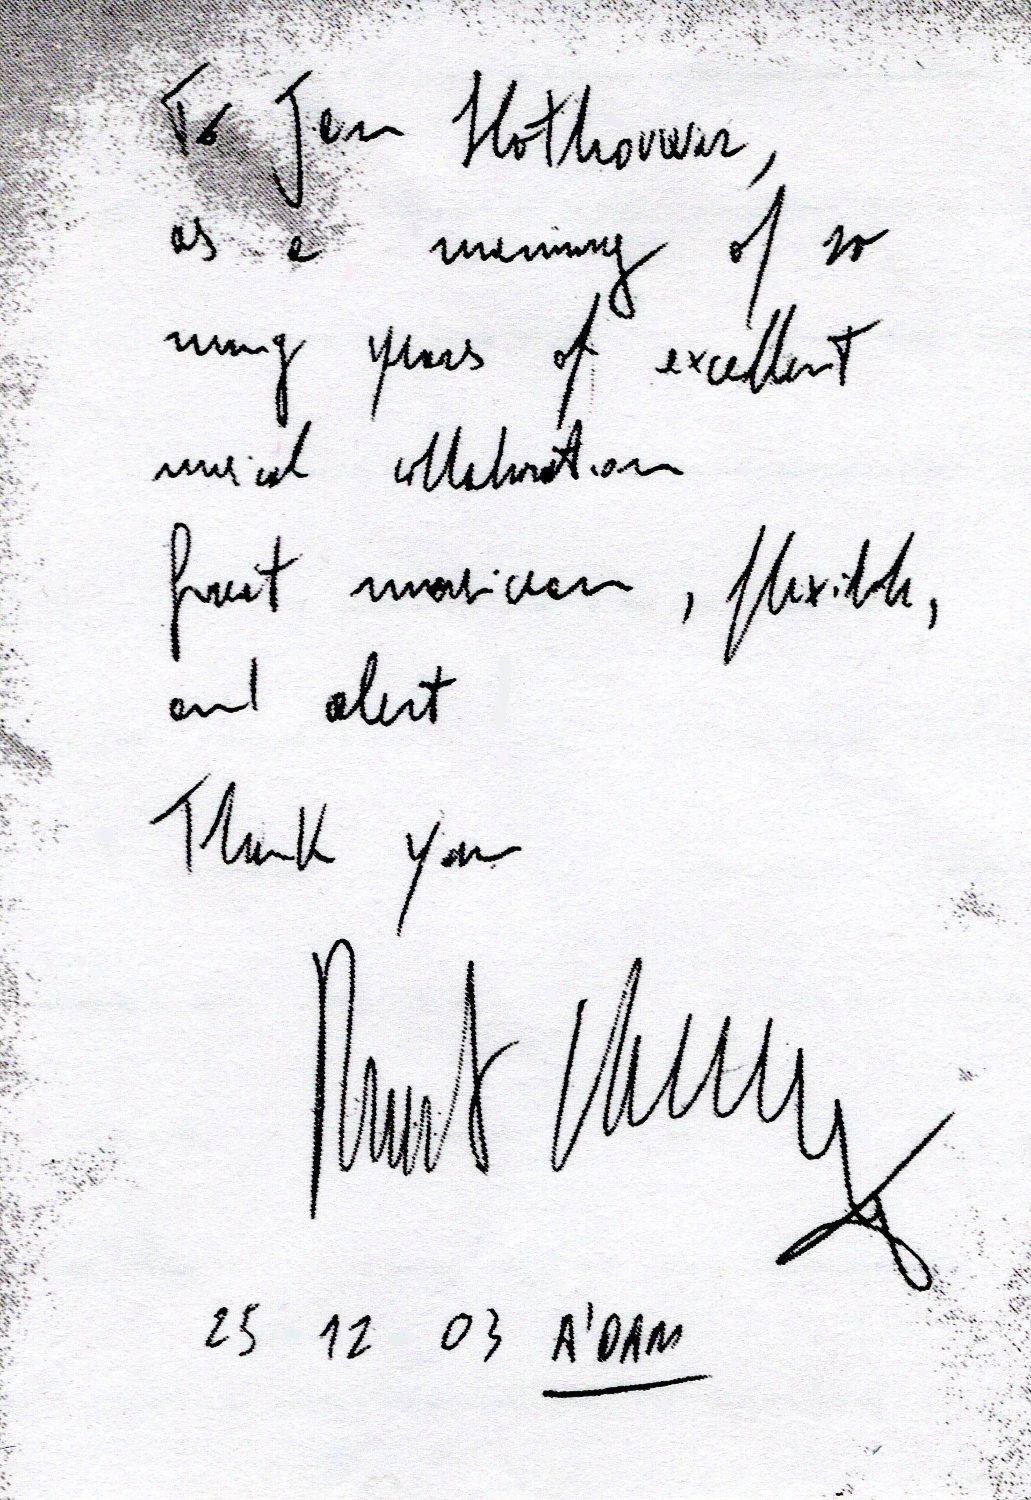 To Jan Slothouwer,
as a memory of so
many years of excellent
musical collaboration
Great musician, flexible,
and alert
Thank you
25 12 03 A'DAM